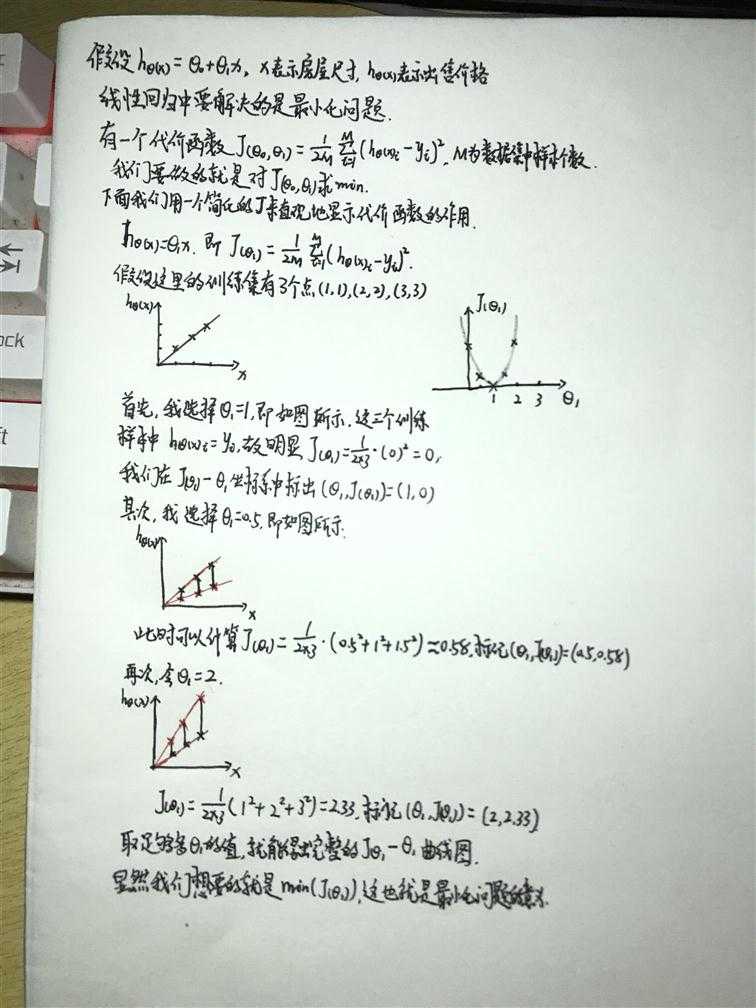 假设 hθ(x) = θ₀+θ₁x, x表示房屋尺寸, hθ(x)表示出售价格
线性回归中要解决的是最小化问题.
有一个代价函数 J(θ₀,θ₁) = 1/2M ∑(i=1→M) (hθ(x)i − yi)², M为数据集中样本个数.
我们要做的就是对J(θ₀,θ₁)求min.
下面我们用一个简化的J来直观地显示代价函数的作用.
hθ(x)=θ₁x. 即 J(θ₁) = 1/2M ∑(i=1→M) (hθ(x)i − yi)².
假设这里的训练集有3个点(1,1),(2,2),(3,3)
hθ(x)
x
J(θ₁)
1 2 3 θ₁
首先, 我选择θ₁=1, 即如图所示. 这三个训练
样本中 hθ(x)i = yi, 故明显 J(θ₁)=1/2×3·(0)²=0,
我们在 J(θ₁)−θ₁坐标系中标出(θ₁,J(θ₁))=(1,0)
其次, 我选择θ₁=0.5, 即如图所示:
hθ(x)
x
此时可以计算J(θ₁)=1/2×3·(0.5²+1²+1.5²)≈0.58, 标记(θ₁,J(θ₁))=(0.5,0.58)
再次, 令θ₁=2.
hθ(x)
x
J(θ₁)=1/2×3(1²+2²+3²)=2.33, 标记(θ₁,J(θ₁))=(2,2.33)
取足够多θ₁的值, 就能得出完整的Jθ₁−θ₁曲线图.
显然我们想要的就是min(J(θ₁)), 这也就是最小化问题的意义.
ock